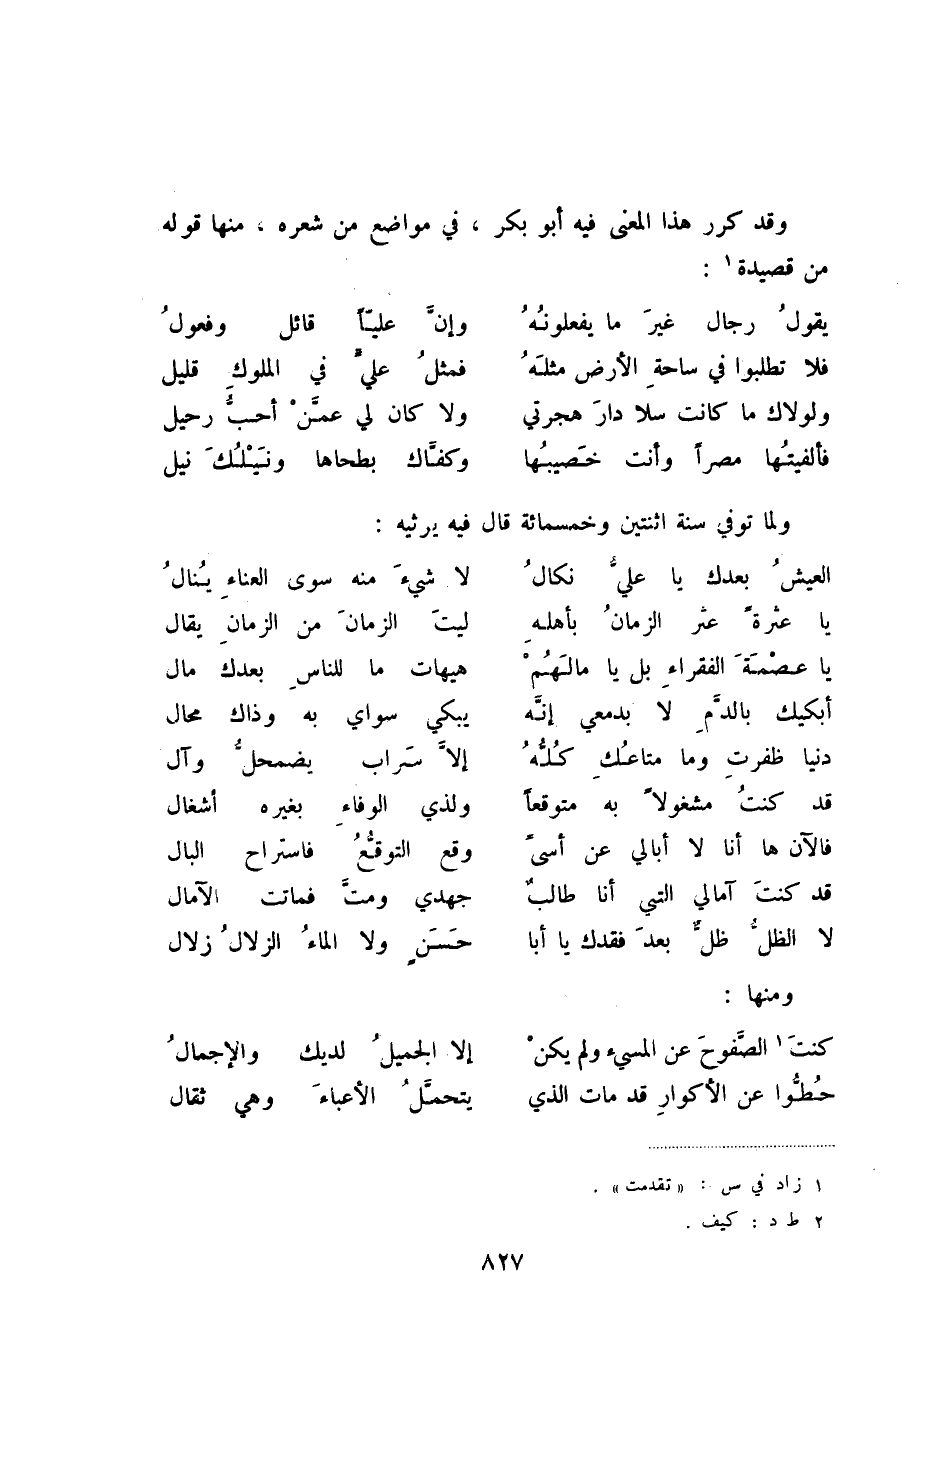 وقد كرر هذا المعنى فيه أبو بكر ، في مواضع من شعره ، منها قوله
من قصيدة١ :
يقولُ رجال غيرَ ما يفعلونُهُ وإنَّ عليّاً قائل وفعولُ
فلا تطلبوا في ساحةِ الأرض مثلَهُ فمثلُ عليٍّ في الملوكِ قليل
ولولاك ما كانت سلا دارَ هجرتي ولا كان لي عمَّنْ أحبُّ رحيل
فألفيتُها مصراً وأنت خَصيبُها وكفّاك بطحاها ونَيْلُكَ نيل
ولما توفي سنة اثنتين وخمسمائة قال فيه يرثيه :
العيشُ بعدك يا عليُّ نكالُ لا شيءَ منه سوى العناءِ يُنالُ
يا عثرةً عثر الزمانُ بأهلهِ ليتَ الزمانَ من الزمانِ يقال
يا عصْمَةَ الفقراءِ بل يا مالَهُمْ هيهات ما للناسِ بعدك مال
أبكيك بالدَّمِ لا بدمعي إنَّه يبكي سواي به وذاك محال
دنيا ظفرتِ وما متاعُكِ كُلُّهُ إلاَّ سَراب يضمحلُّ وآل
قد كنتُ مشغولاً به متوقعاً ولذي الوفاءِ بغيره أشغال
فالآن ها أنا لا أبالي عن أسىً وقع التوقعُّ فاستراح البال
قد كنتَ آمالي التي أنا طالبٌ جهدي ومتَّ فماتت الآمال
لا الظلُّ ظلٌّ بعدَ فقدك يا أبا حَسَنٍ ولا الماءُ الزلالُ زلال
ومنها :
كنتَ١ الصَّفوحَ عن المسيء ولم يكنْ إلا الجميلُ لديك والإجمالُ
حُطُّوا عن الأكوارِ قد مات الذي يتحمَّلُ الأعباءَ وهي ثقال
١ زاد في س : « تقدمت » .
٢ ط د : كيف .
٨٢٧